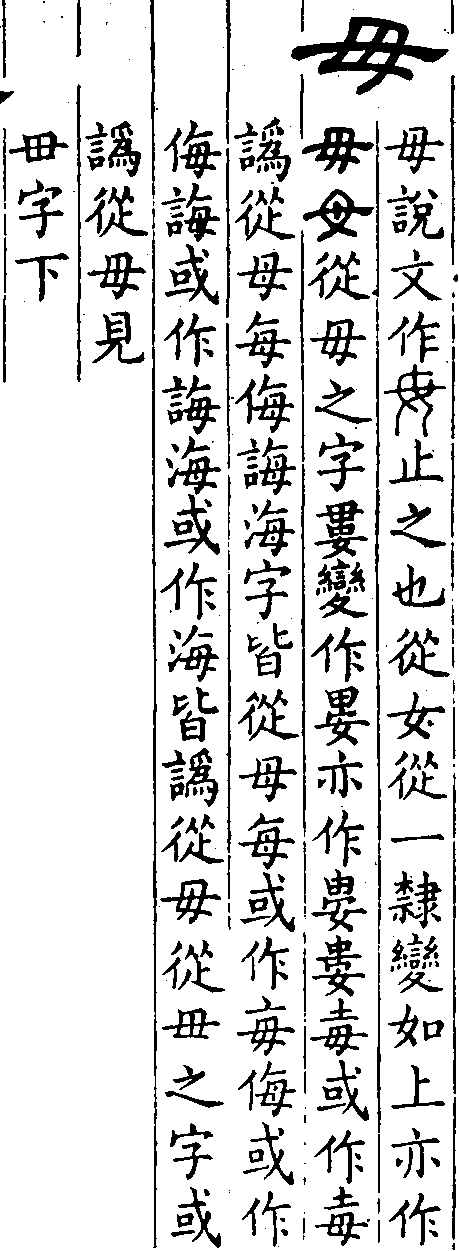 毋
毋說文作𣫭止之也從女從一隸變如上亦作
毋從毋之字婁變作婁亦作婁婁毐或作毒
譌從母每侮誨海字皆從母每或作毎侮或作
侮誨或作誨海或作海皆譌從毋從毌之字或
譌從毋見
毌字下